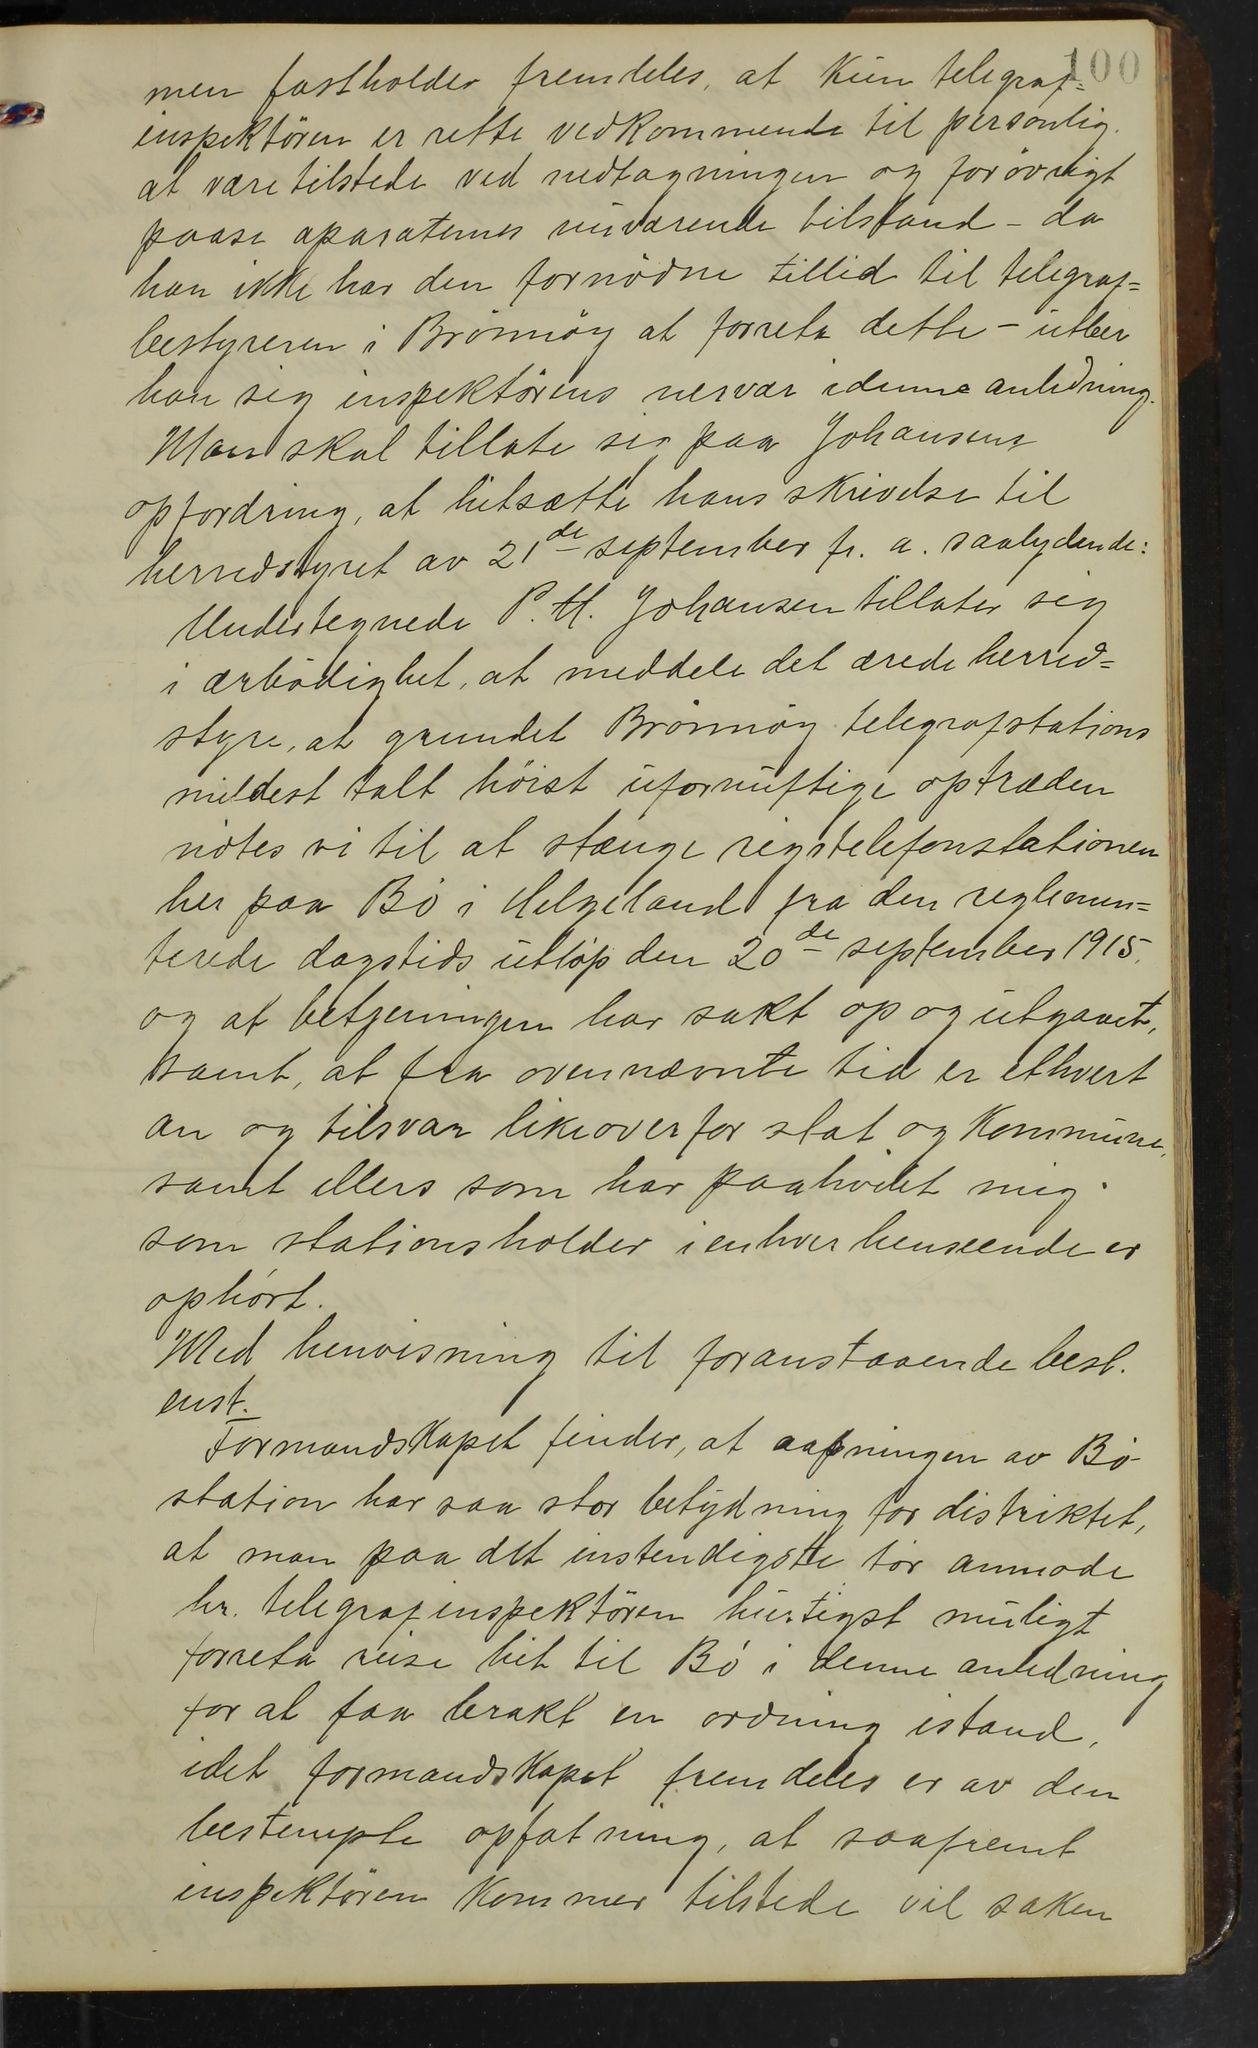 100
men fastholder fremdeles, at kun telegraf=
inspektören er rette vedkommende til personlig
at være tilstede ved nedtagningen og forövrigt
paase aparaternes nuværende tilstand – da
han ikke har den fornödne tillid til telegraf=
bestyreren i Brönnöy at forreta dette – utber
han sig inspektörens nervær i denne anledning.
Man skal tillate sig paa Johansens
opfordring, at hitsætte hans skrivelse til
herredstyret av 21de september fr. a. saalydende:
Undertegnede P. M. Johansen tillater sig
i ærbödighet, at meddele det ærede herred=
styre, at grundet Brönnöy telegrafstations
mildest talt höist ufornuftige optræden
nötes vi til at stænge rigstelefonstationen
her paa Bö i Helgeland fra den reglemen=
terede dagstids utlöp den 20de september 1915.
og at betjeningen har sakt op og utgaaet,
samt, at fra ovennævnte tid er ethvert
an og tilsvar likeoverfor stat og kommune,
samt ellers som har paahvilet mig
som stationsholder i enhver henseende er
ophört.
Med henvisning til foranstaaende besl.
enst.
Formandskapet finder, at aapningen av Bö
station har saa stor betydning for distriktet,
at man paa det instendigste tör anmode
hr. telegrafinspektören hurtigst muligt
forreta reise hit til Bö i denne anledning
for at faa brakt en ordning istand,
idet formandskapet fremdeles er av den
bestempte opfatning, at saafremt
inspektören kommer tilstede vil saken